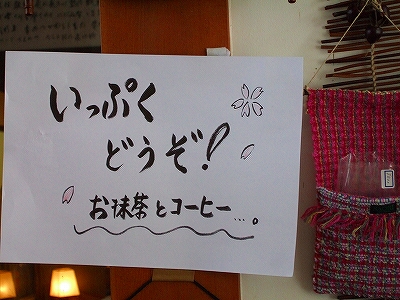 いっぷく
どうぞ!
お抹茶とコーヒー…。